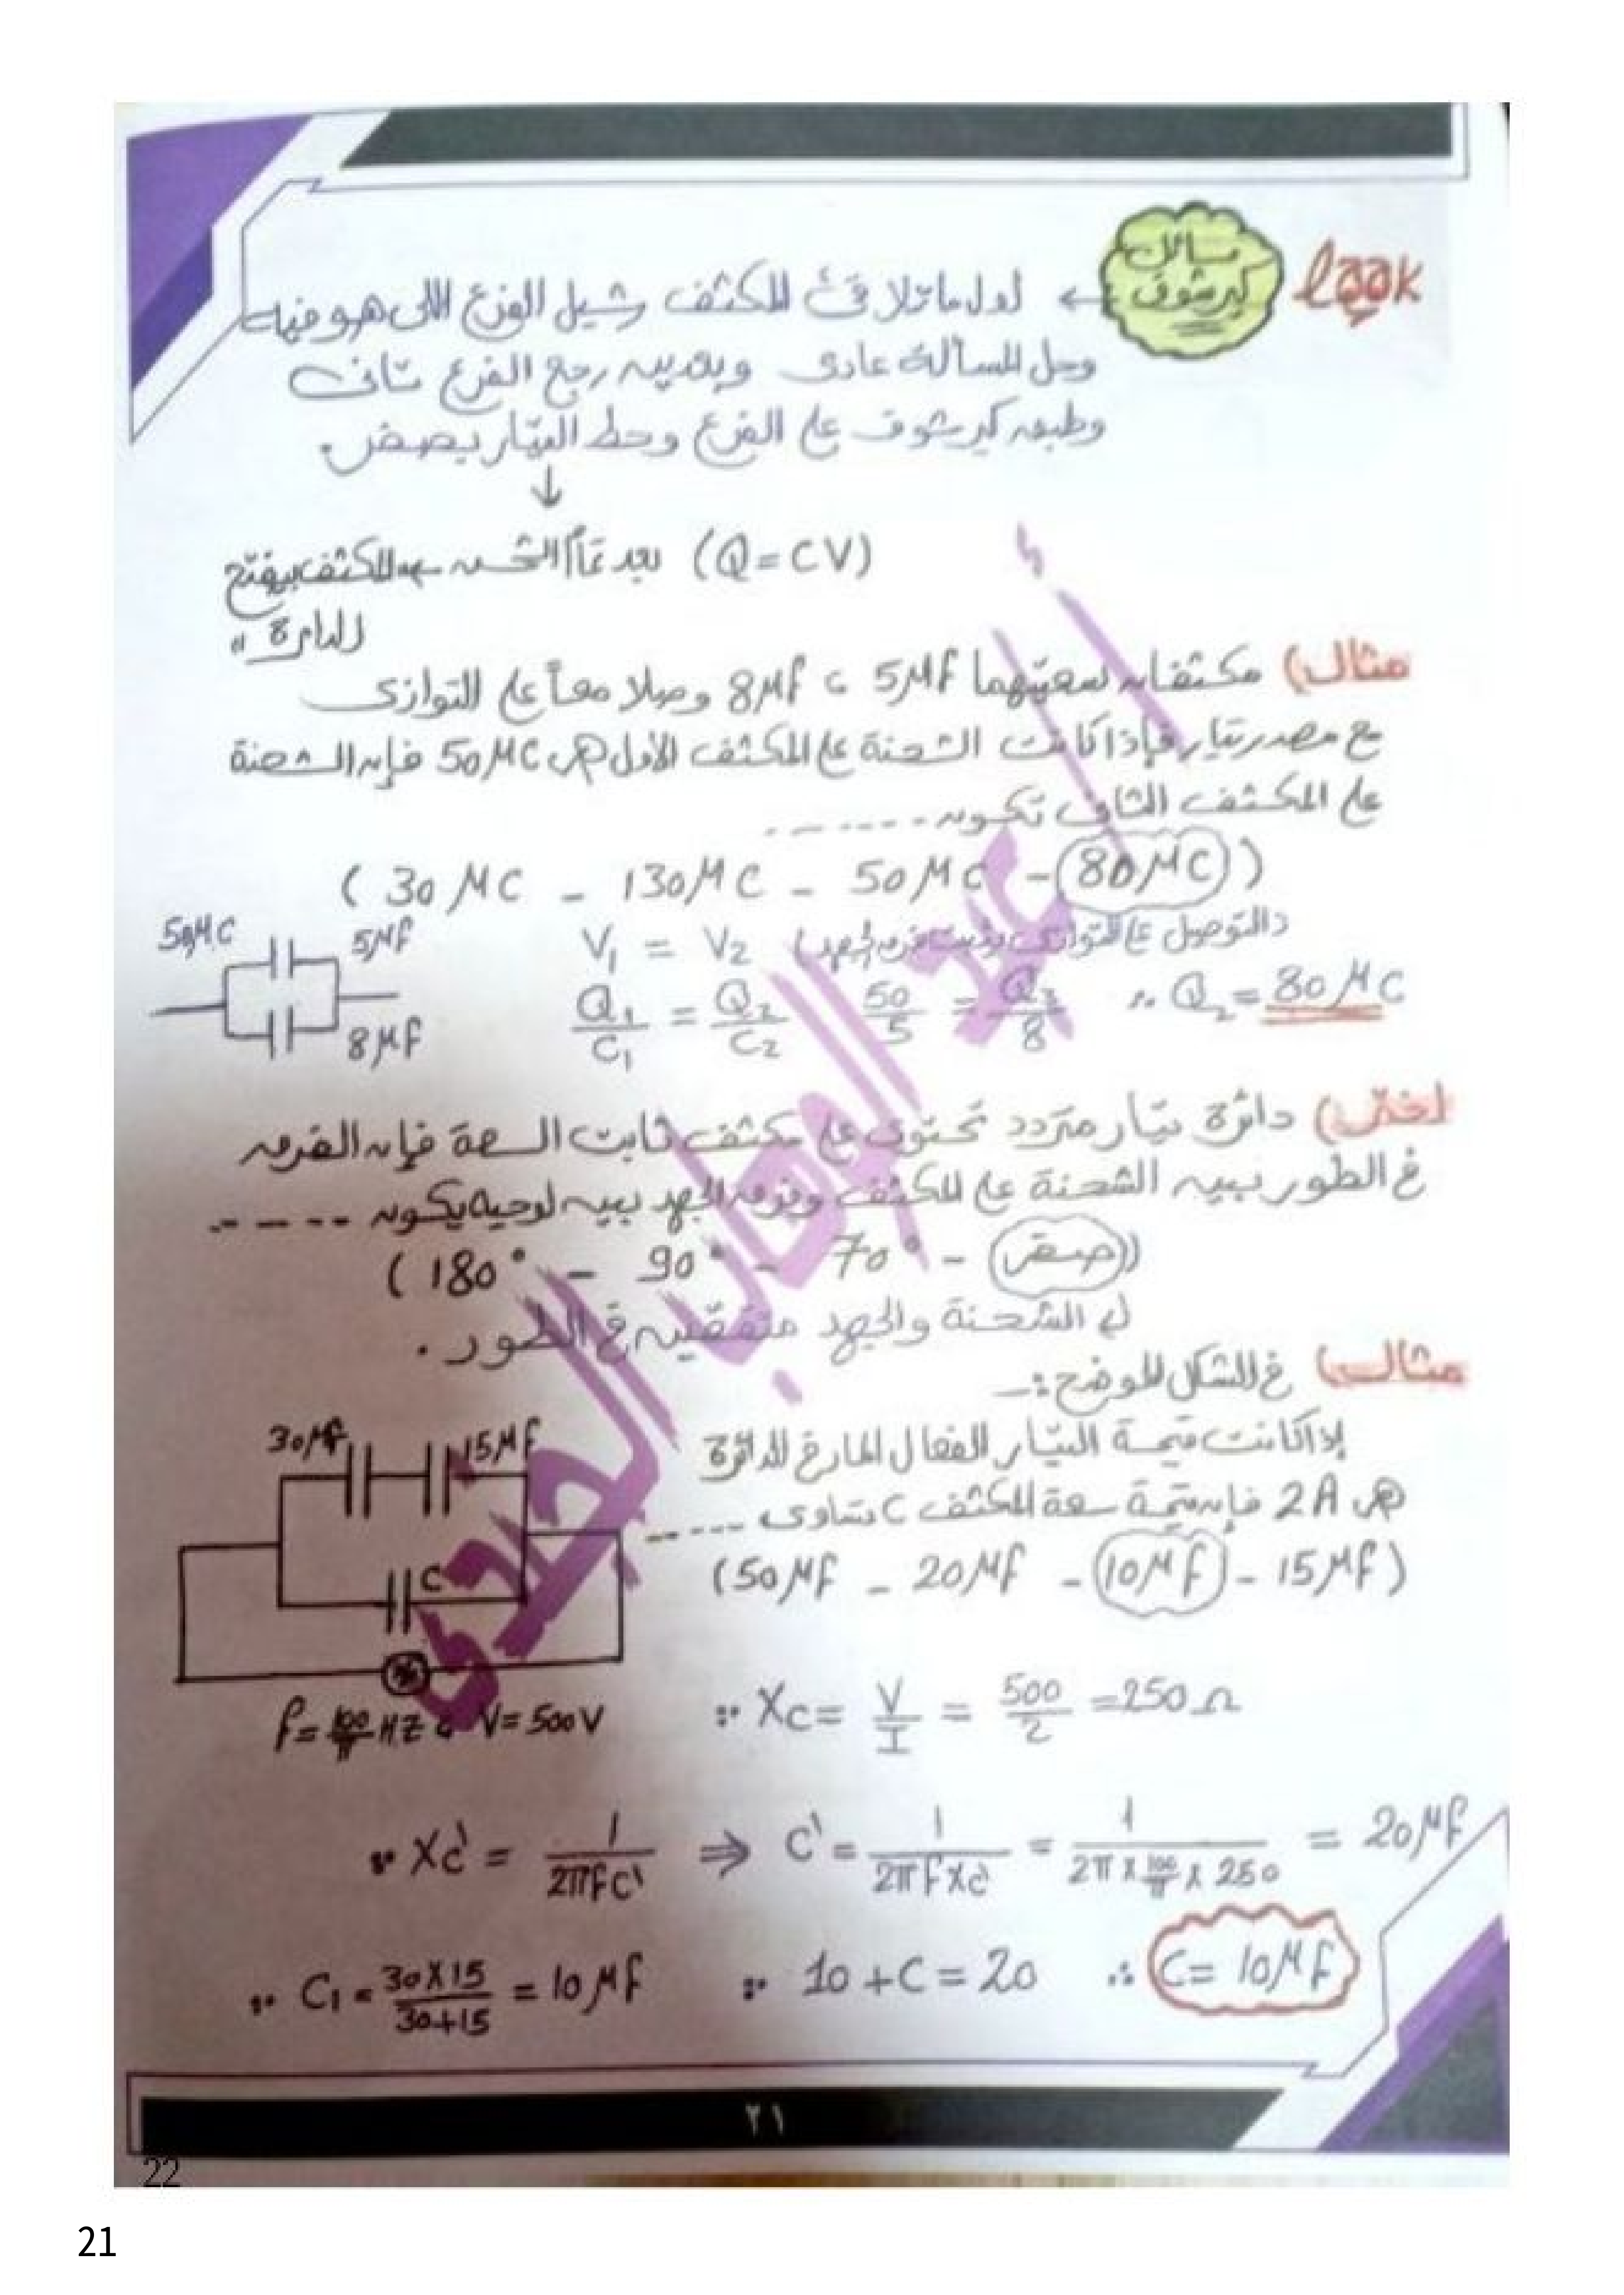 look
مسائل
كيرشوف
← أول ما تلاقى المكثف شيل الفرع اللى هو فيه
وحل المسألة عادى وبعدين رجع الفرع تانى
وطبق كيرشوف على الفرع وحط التيار بصفر.
↓
(Q = CV) بعد تمام الشحن المكثف بيفتح
الدائرة "
مثال) مكثفان سعتيهما 5μf ، 8μf وصلا معاً على التوازى
مع مصدر تيار فإذا كانت الشحنة على المكثف الأول هى 50μC فإن الشحنة
على المكثف الثانى تكون -------
( 30μC - 130μC - 50μC - 80μC )
V₁ = V₂ (التوصيل على التوازى يثبت فرق الجهد)
Q₁/C₁ = Q₂/C₂ 50/5 = Q₂/8 ∴ Q₂ = 80μC
50μC 5μf
8μf
اختر) دائرة تيار متردد تحتوى على مكثف ثابت السعة فإن الفرق
فى الطور بين الشحنة على المكثف وفرق الجهد بين لوحيه يكون -----
( 180° - 90° - 70° - صفر )
الشحنة والجهد متفقين فى الطور .
مثال) فى الشكل الموضح :-
إذا كانت قيمة التيار الفعال المار فى الدائرة
هى 2A فإن قيمة سعة المكثف C تساوى -----
(50μf - 20μf - 10μf - 15μf)
30μf 15μf
C
f = 100/π HZ ، V = 500V
∵ XC = V/I = 500/2 = 250Ω
∵ XC' = 1/2πfC' ⇒ C' = 1/2πfXC' = 1/2π x 100/π x 250 = 20μf
∵ C₁ = 30X15/30+15 = 10μf ∵ 10 + C = 20 ∴ C = 10μf
عبد الوهاب الجندى
٢١
22
21